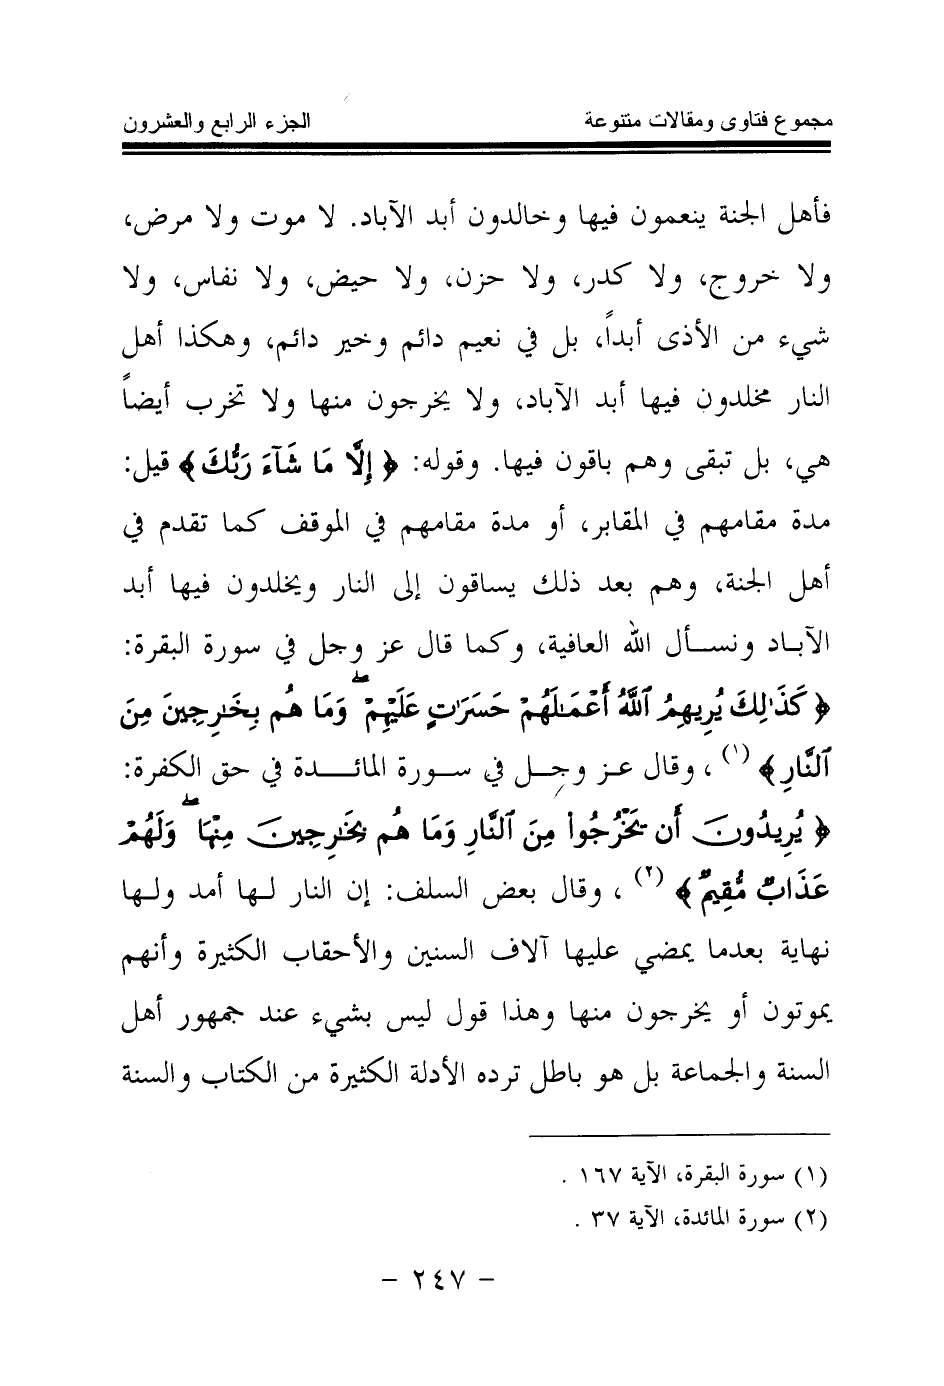 مجموع فتاوى ومقالات متنوعة الجزء الرابع والعشرون
فأهل الجنة ينعمون فيها وخالدون أبد الآباد. لا موت ولا مرض،
ولا خروج، ولا كدر، ولا حزن، ولا حيض، ولا نفاس، ولا
شيء من الأذى أبداً، بل في نعيم دائم وخير دائم، وهكذا أهل
النار مخلدون فيها أبد الآباد، ولا يخرجون منها ولا تخرب أيضاً
هي، بل تبقى وهم باقون فيها. وقوله: ﴿ إِلَّا مَا شَآءَ رَبُّكَ ﴾ قيل:
مدة مقامهم في المقابر، أو مدة مقامهم في الموقف كما تقدم في
أهل الجنة، وهم بعد ذلك يساقون إلى النار ويخلدون فيها أبد
الآباد ونسأل الله العافية، وكما قال عز وجل في سورة البقرة:
﴿ كَذَٰلِكَ يُرِيهِمُ ٱللَّهُ أَعْمَٰلَهُمْ حَسَرَٰتٍ عَلَيْهِمْ ۖ وَمَا هُم بِخَٰرِجِينَ مِنَ
ٱلنَّارِ ﴾ (١) ، وقال عز وجل في سورة المائدة في حق الكفرة:
﴿ يُرِيدُونَ أَن يَخْرُجُوا۟ مِنَ ٱلنَّارِ وَمَا هُم بِخَٰرِجِينَ مِنْهَا ۖ وَلَهُمْ
عَذَابٌ مُّقِيمٌ ﴾ (٢) ، وقال بعض السلف: إن النار لها أمد ولها
نهاية بعدما يمضي عليها آلاف السنين والأحقاب الكثيرة وأنهم
يموتون أو يخرجون منها وهذا قول ليس بشيء عند جمهور أهل
السنة والجماعة بل هو باطل ترده الأدلة الكثيرة من الكتاب والسنة
(١) سورة البقرة، الآية ١٦٧ .
(٢) سورة المائدة، الآية ٣٧ .
- ٢٤٧ -